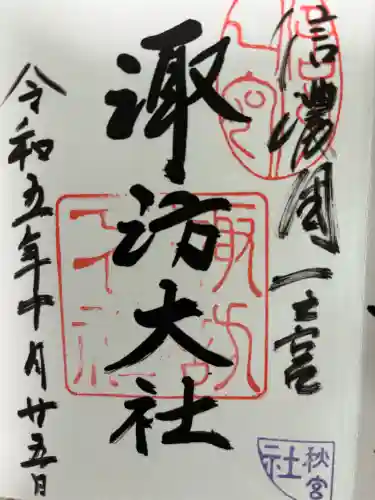 信濃国一之宮
諏訪大社
令和五年十月廿五日
諏訪大社
秋宮
社